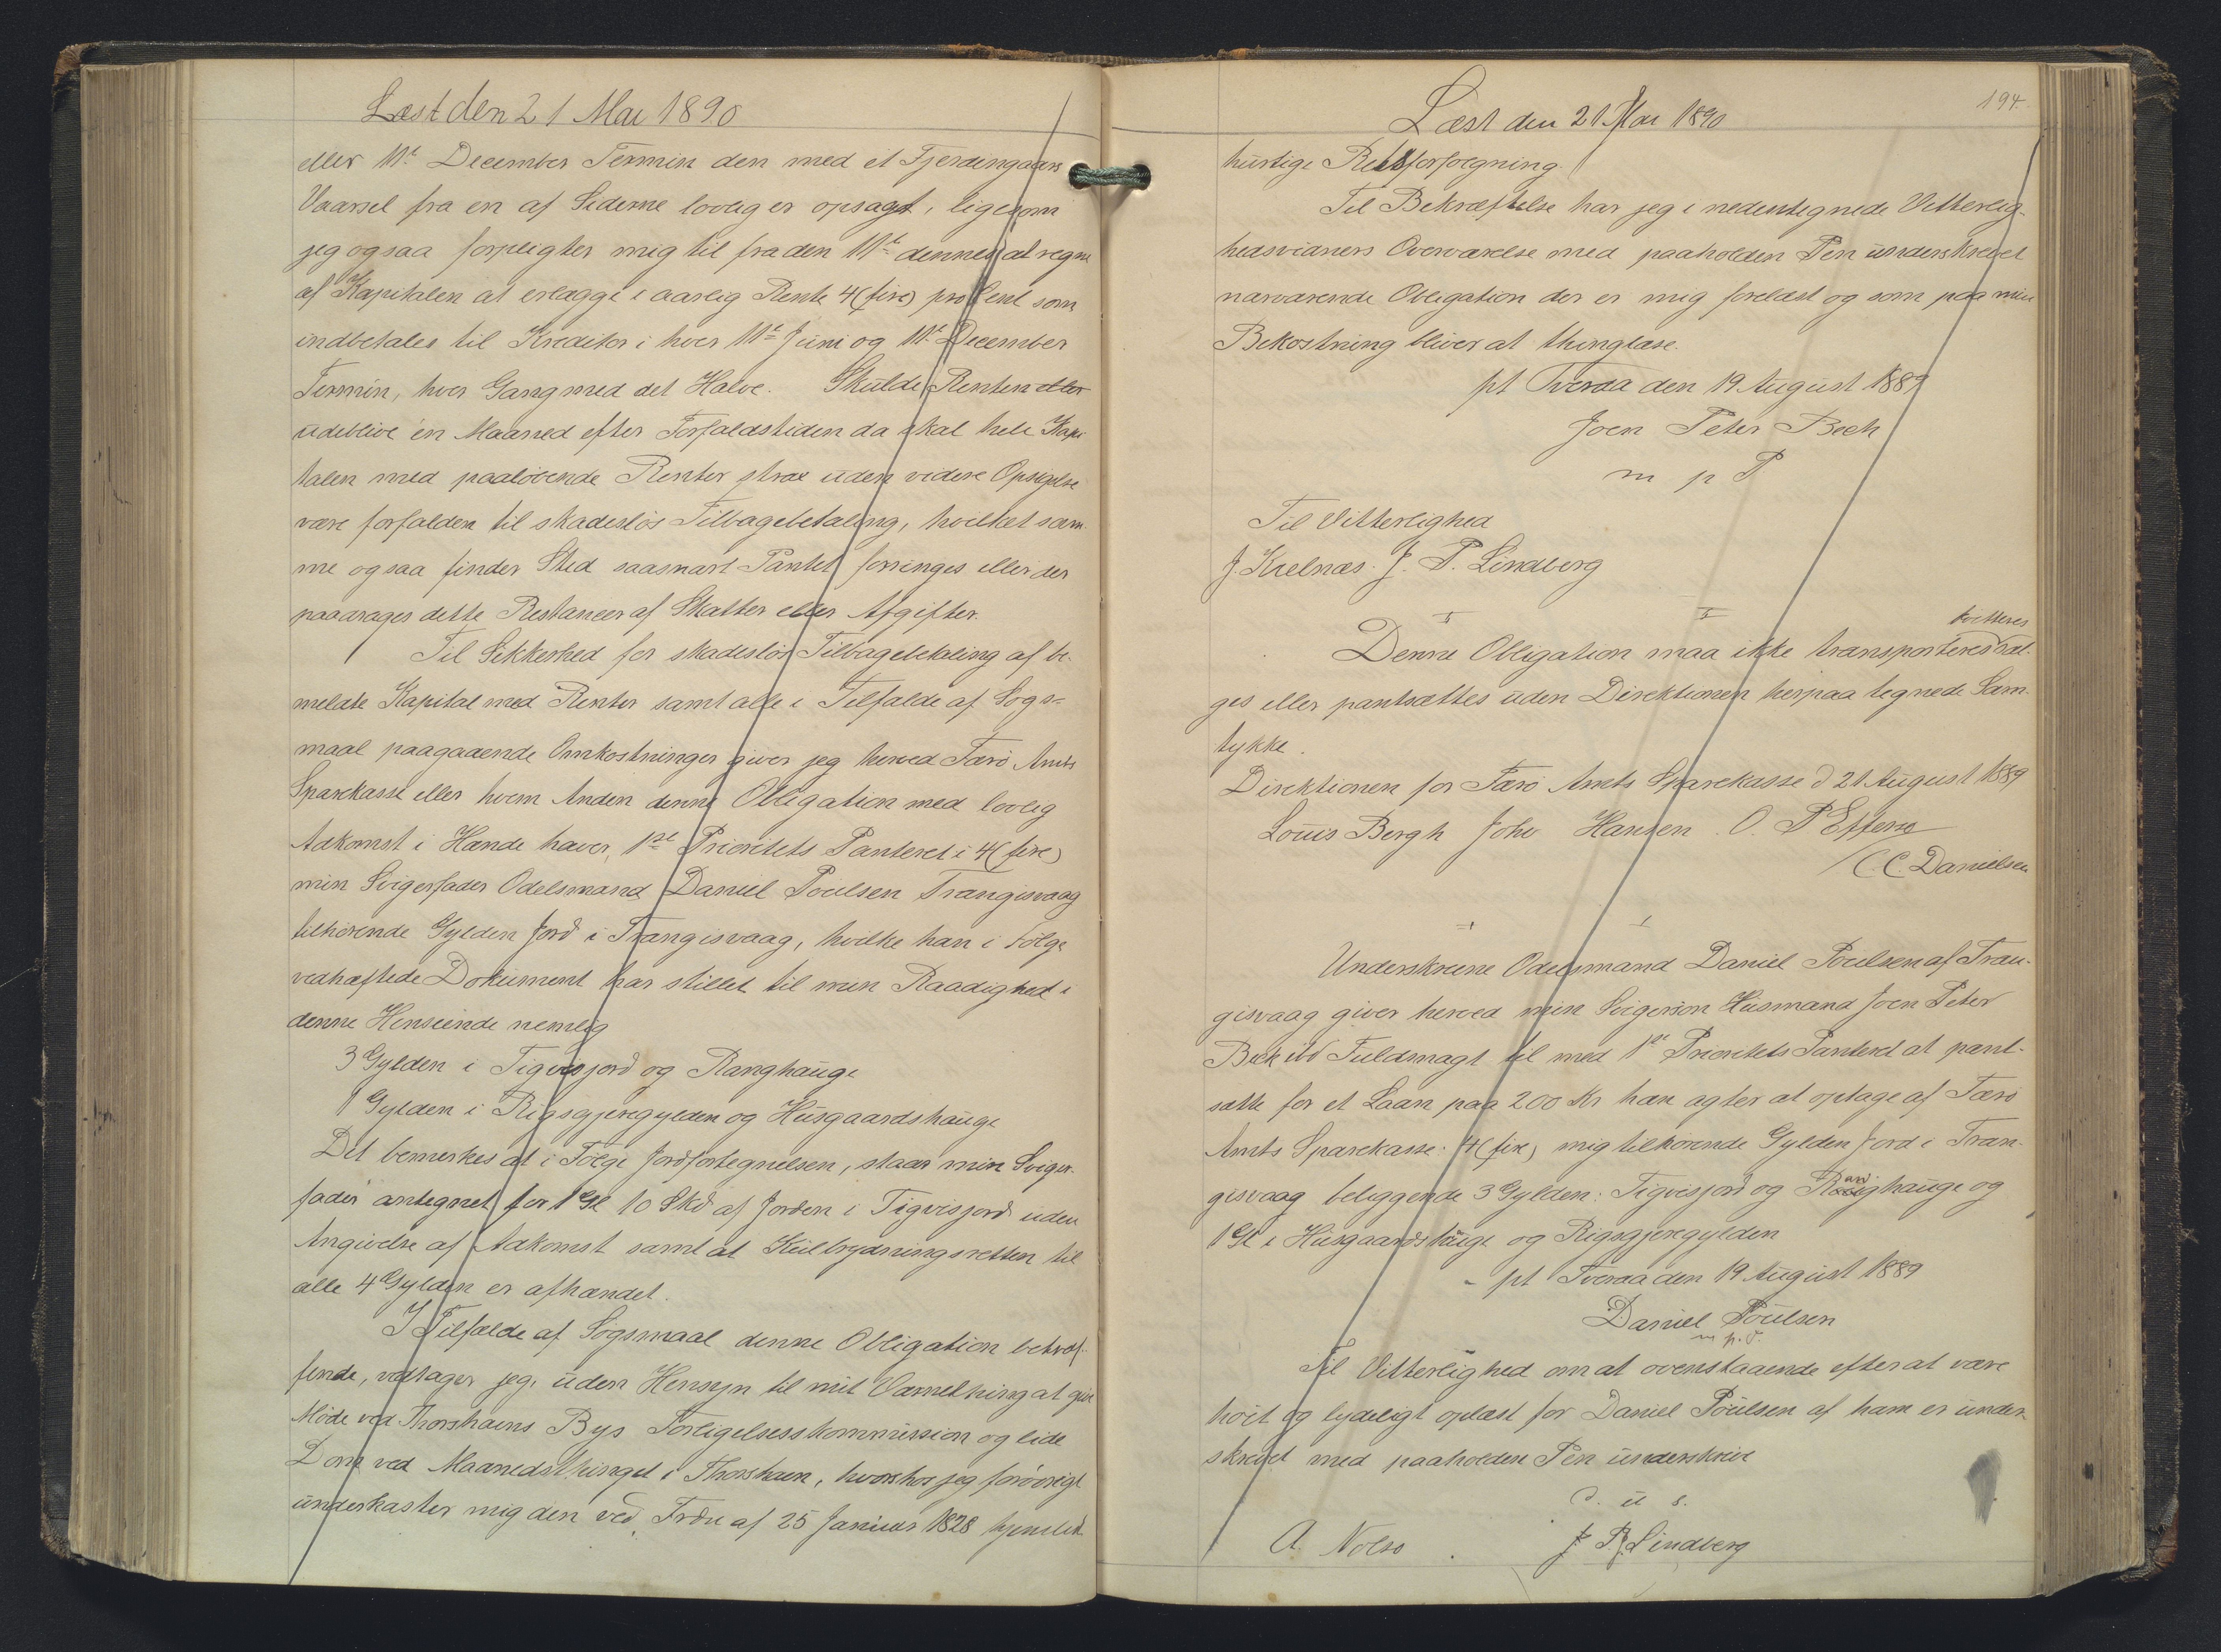 Læst den 21 Mai 1890
eller 11te December Termin den med et Fjerdingaars
Vaarsel fra en af Siderne lovlig er opsagt, ligesom
jeg ogsaa forpligter mig til fra den 11te dennes at regne
af Kapitalen at erlægge i aarlig Rente 4 (fire) pro Cent som
indbetales til Kreditor i hver 11te Juni og 11te December
Termin, hver Gang med det Halve. Skulde Renten eller
udeblive en Maaned efter Forfaldstiden da skal hele Kapi
talen med paaløbende Renter strax uden videre Opsigelse
være forfalden til skadesløs Tilbagebetaling, hvilket sam
me ogsaa finder Sted saasnart Pantet forringes eller der
paadrages dette Restancer af Skatter eller Afgifter.
Til Sikkerhed for skadesløs Tilbagebetaling af be-
meldte Kapital med Renter samt alle i Tilfælde af Søgs-
maal paagaaende Omkostninger giver jeg herved Færø Amts
Sparekasse eller hvem Anden denne Obligation med lovlig
Adkomst i Hænde haver, 1ste Prioritets Panteret i 4 (fire)
min Svigerfader Odelsmand Daniel Poulsen Trangisvaag
tilhørende Gylden Jord i Trangisvaag, hvilke han i Følge
vedhæftede Dokument har stillet til min Raadighed i
denne Henseende nemlig
3 Gylden i Tigvisjord og Ranghauge
1 Gylden i Rigsgjeregylden og Husgaardshauge
Det bemærkes at i Følge Jordfortegnelsen, staar min Sviger-
fader antegnet for 1 Gl 10 Skd af Jorden i Tigvisjord uden
Angivelse af Adkomst samt at Keilbrydningsretten til
alle 4 Gylden er afhændet.
I Tilfælde af Søgsmaal denne Obligation betræf-
fende, vedtager jeg, uden Hensyn til mit Værnething at give
Møde ved Thorshavns Bys Forligelsesskommission og lide
Dom ved Maanedsthinget i Thorshavn, hvorhos jeg forøvrigt
underkaster mig den ved Frdn af 25 Januar 1828 hjemlede
Læst den 21 Mai 1890
194.
hurtige Retsforfølgning.
Til Bekræftelse har jeg i nedentegnede Vitterlig-
hedsvidners Overværelse med paaholden Pen underskrevet
nærværende Obligation der er mig forelæst og som paa min
Bekostning bliver at thinglæse.
pt Tveraa den 19 August 1889
Joen Peter Bech
m p P
Til Vitterlighed
J. Kielnæs. J. P. Lindberg
kvitteres
Denne Obligation maa ikke transporteres sæl-
ges eller pantsættes uden Direktionen herpaa tegnede Sam-
tykke.
Direktionen for Færø Amts Sparekasse d 21 August 1889
Louis Bergh Johs Hansen. O. P Effersø
C. C. Danielsen
Underskrevne Odelsmand Daniel Poulsen af Tran-
gisvaag giver herved min Svigersøn Husmand Joen Peter
Bech ibd Fuldmagt til med 1ste Prioritets Panteret at pant-
sætte for et Laan paa 200 Kr han agter at optage af Færø
Amts Sparekasse. 4 (fire) mig tilhørende Gylden Jord i Tran-
gisvaag beliggende 3 Gylden: Tigvisjord og Ranghauge og
1 Gl i Husgaardshauge og Rigsgjeregylden
- pt Tveraa den 19 August 1889
Daniel Poulsen
m. p. P.
Til Vitterlighed om at ovenstaaende efter at være
høit og lydeligt oplæst for Daniel Poulsen af ham er under-
skrevet med paaholden Pen underskrive
d. u s.
A. Nolsø J P Lindberg